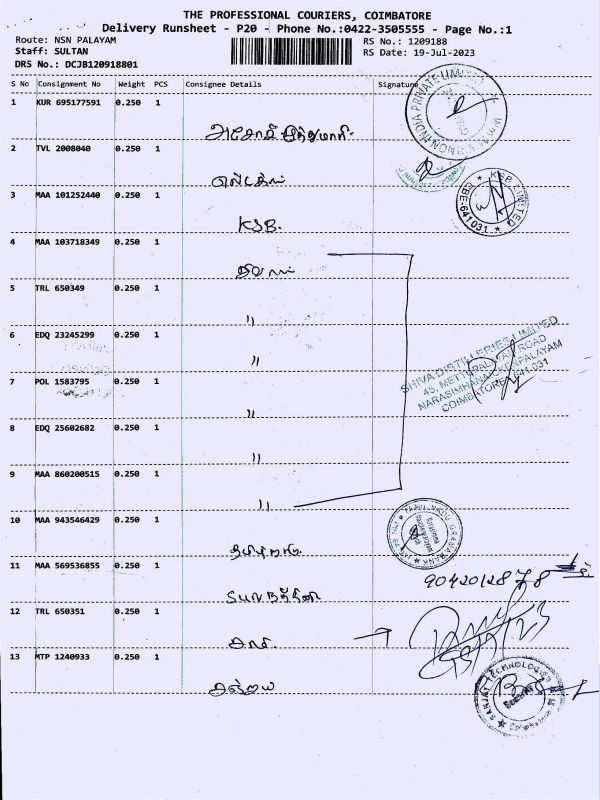 THE PROFESSIONAL COURIERS, COIMBATORE
Delivery Runsheet - P20 - Phone No.:0422-3505555 - Page No.:1
Route: NSN PALAYAM
RS No.: 1209188
Staff: SULTAN
RS Date: 19-Jul-2023
DRS No.: DCJB120918801
S No Consignment No Weight PCS Consignee Details Signature
1 KUR 695177591 0.250 1
2 TVL 2008040 0.250 1
3 MAA 101252440 0.250 1
KSB.
CBE-641031 ★ KSB LIMITED ★
4 MAA 103718349 0.250 1
சிவா
5 TRL 650349 0.250 1
"
6 EDQ 23245299 0.250 1
"
SHIVA DISTILLERIES LIMITED
7 POL 1583795 0.250 1
"
COIMBATORE - 641 031
8 EDQ 25602682 0.250 1
"
9 MAA 860200515 0.250 1
"
10 MAA 943546429 0.250 1
TAMIL NADU GRAMA BANK
11 MAA 569536855 0.250 1
9042012878
12 TRL 650351 0.250 1
13 MTP 1240933 0.250 1